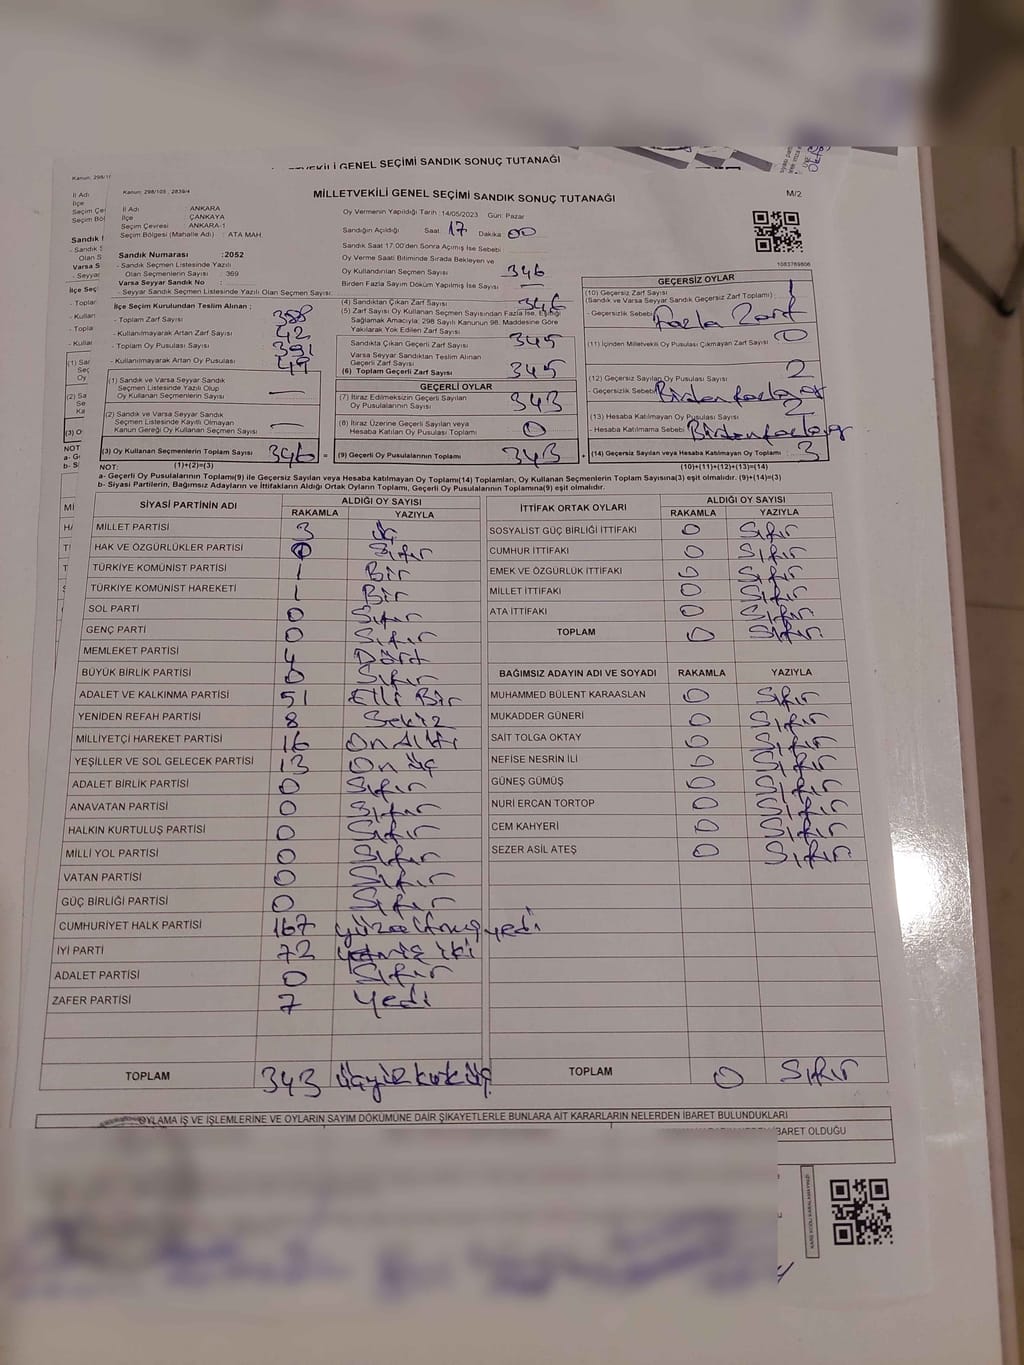 MİLLETVEKİLİ GENEL SEÇİMİ SANDIK SONUÇ TUTANAĞI
Kanun: 298/105 , 2839/4
MİLLETVEKİLİ GENEL SEÇİMİ SANDIK SONUÇ TUTANAĞI
M/2
İl Adı : ANKARA
İlçe : ÇANKAYA
Seçim Çevresi : ANKARA-1
Seçim Bölgesi (Mahalle Adı) : ATA MAH.
Sandık Numarası :2052
- Sandık Seçmen Listesinde Yazılı
Olan Seçmenlerin Sayısı : 369
Varsa Seyyar Sandık No :
- Seyyar Sandık Seçmen Listesinde Yazılı Olan Seçmen Sayısı:
Oy Vermenin Yapıldığı Tarih :14/05/2023 Gün: Pazar
Sandığın Açıldığı Saat 17 Dakika 00
Sandık Saat 17.00'den Sonra Açılmış İse Sebebi
Oy Verme Saati Bitiminde Sırada Bekleyen ve
Oy Kullandırılan Seçmen Sayısı 346
Birden Fazla Sayım Döküm Yapılmış İse Sayısı —
1083789806
İlçe Seçim Kurulundan Teslim Alınan ;
- Toplam Zarf Sayısı 388
- Kullanılmayarak Artan Zarf Sayısı 42
- Toplam Oy Pusulası Sayısı 391
- Kullanılmayarak Artan Oy Pusulası
(1) Sandık ve Varsa Seyyar Sandık
Seçmen Listesinde Yazılı Olup
Oy Kullanan Seçmenlerin Sayısı —
(2) Sandık ve Varsa Seyyar Sandık
Seçmen Listesinde Kayıtlı Olmayan
Kanun Gereği Oy Kullanan Seçmen Sayısı —
(3) Oy Kullanan Seçmenlerin Toplam Sayısı 346 =
(1)+(2)=(3)
(4) Sandıktan Çıkan Zarf Sayısı 346
(5) Zarf Sayısı Oy Kullanan Seçmen Sayısından Fazla İse, Eşitliği
Sağlamak Amacıyla; 298 Sayılı Kanunun 98. Maddesine Göre
Yakılarak Yok Edilen Zarf Sayısı
Sandıkta Çıkan Geçerli Zarf Sayısı 345
Varsa Seyyar Sandıktan Teslim Alınan
Geçerli Zarf Sayısı
(6) Toplam Geçerli Zarf Sayısı 345
GEÇERLİ OYLAR
(7) İtiraz Edilmeksizin Geçerli Sayılan
Oy Pusulalarının Sayısı 343
(8) İtiraz Üzerine Geçerli Sayılan veya
Hesaba Katılan Oy Pusulası Toplamı 0
(9) Geçerli Oy Pusulalarının Toplamı 343 +
GEÇERSİZ OYLAR
(10) Geçersiz Zarf Sayısı
(Sandık ve Varsa Seyyar Sandık Geçersiz Zarf Toplamı) : 1
- Geçersizlik Sebebi Fazla Zarf
(11) İçinden Milletvekili Oy Pusulası Çıkmayan Zarf Sayısı 0
(12) Geçersiz Sayılan Oy Pusulası Sayısı 2
- Geçersizlik Sebebi Birden fazla oy
(13) Hesaba Katılmayan Oy Pusulası Sayısı
- Hesaba Katılmama Sebebi Birden fazla oy
(14) Geçersiz Sayılan veya Hesaba Katılmayan Oy Toplamı 3
(10)+(11)+(12)+(13)=(14)
NOT:
a- Geçerli Oy Pusulalarının Toplamı(9) ile Geçersiz Sayılan veya Hesaba katılmayan Oy Toplamı(14) Toplamları, Oy Kullanan Seçmenlerin Toplam Sayısına(3) eşit olmalıdır. (9)+(14)=(3)
b- Siyasi Partilerin, Bağımsız Adayların ve İttifakların Aldığı Ortak Oyların Toplamı, Geçerli Oy Pusulalarının Toplamına(9) eşit olmalıdır.
SİYASİ PARTİNİN ADI ALDIĞI OY SAYISI
RAKAMLA YAZIYLA
MİLLET PARTİSİ 3 Üç
HAK VE ÖZGÜRLÜKLER PARTİSİ 0 Sıfır
TÜRKİYE KOMÜNİST PARTİSİ 1 Bir
TÜRKİYE KOMÜNİST HAREKETİ 1 Bir
SOL PARTİ 0 Sıfır
GENÇ PARTİ 0 Sıfır
MEMLEKET PARTİSİ 4 Dört
BÜYÜK BİRLİK PARTİSİ 0 Sıfır
ADALET VE KALKINMA PARTİSİ 51 Elli Bir
YENİDEN REFAH PARTİSİ 8 Sekiz
MİLLİYETÇİ HAREKET PARTİSİ 16 On Altı
YEŞİLLER VE SOL GELECEK PARTİSİ 13 On Üç
ADALET BİRLİK PARTİSİ 0 Sıfır
ANAVATAN PARTİSİ 0 Sıfır
HALKIN KURTULUŞ PARTİSİ 0 Sıfır
MİLLİ YOL PARTİSİ 0 Sıfır
VATAN PARTİSİ 0 Sıfır
GÜÇ BİRLİĞİ PARTİSİ 0 Sıfır
CUMHURİYET HALK PARTİSİ 167 yüzaltmışyedi
İYİ PARTİ 72 yetmiş iki
ADALET PARTİSİ 0 Sıfır
ZAFER PARTİSİ 7 Yedi
TOPLAM 343 üçyüzkırküç
İTTİFAK ORTAK OYLARI ALDIĞI OY SAYISI
RAKAMLA YAZIYLA
SOSYALİST GÜÇ BİRLİĞİ İTTİFAKI 0 Sıfır
CUMHUR İTTİFAKI 0 Sıfır
EMEK VE ÖZGÜRLÜK İTTİFAKI 0 Sıfır
MİLLET İTTİFAKI 0 Sıfır
ATA İTTİFAKI 0 Sıfır
TOPLAM 0 Sıfır
BAĞIMSIZ ADAYIN ADI VE SOYADI RAKAMLA YAZIYLA
MUHAMMED BÜLENT KARAASLAN 0 Sıfır
MUKADDER GÜNERİ 0 Sıfır
SAİT TOLGA OKTAY 0 Sıfır
NEFİSE NESRİN İLİ 0 Sıfır
GÜNEŞ GÜMÜŞ 0 Sıfır
NURİ ERCAN TORTOP 0 Sıfır
CEM KAHYERİ 0 Sıfır
SEZER ASİL ATEŞ 0 Sıfır
TOPLAM 0 Sıfır
OYLAMA İŞ VE İŞLEMLERİNE VE OYLARIN SAYIM DÖKÜMÜNE DAİR ŞİKAYETLERLE BUNLARA AİT KARARLARIN NELERDEN İBARET BULUNDUKLARI
İBARET OLDUĞU
KARE KODU KARALAMAYINIZ!